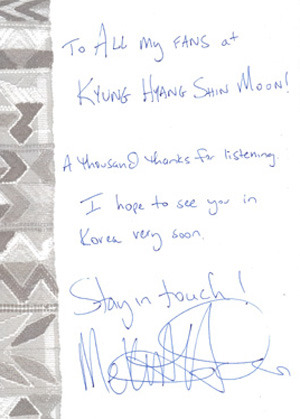 To All my fans at
Kyung Hyang Shin Moon!
A thousand thanks for listening.
I hope to see you in
Korea very soon.
Stay in touch!